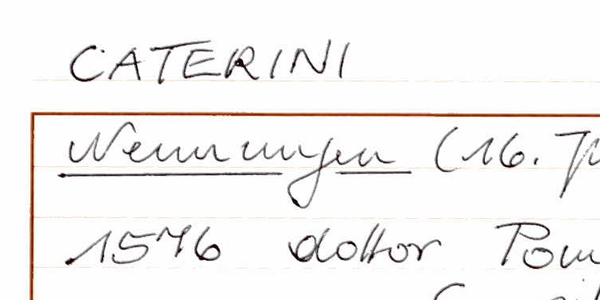 CATERINI
Nennungen (16. J
1576 dottor Pom